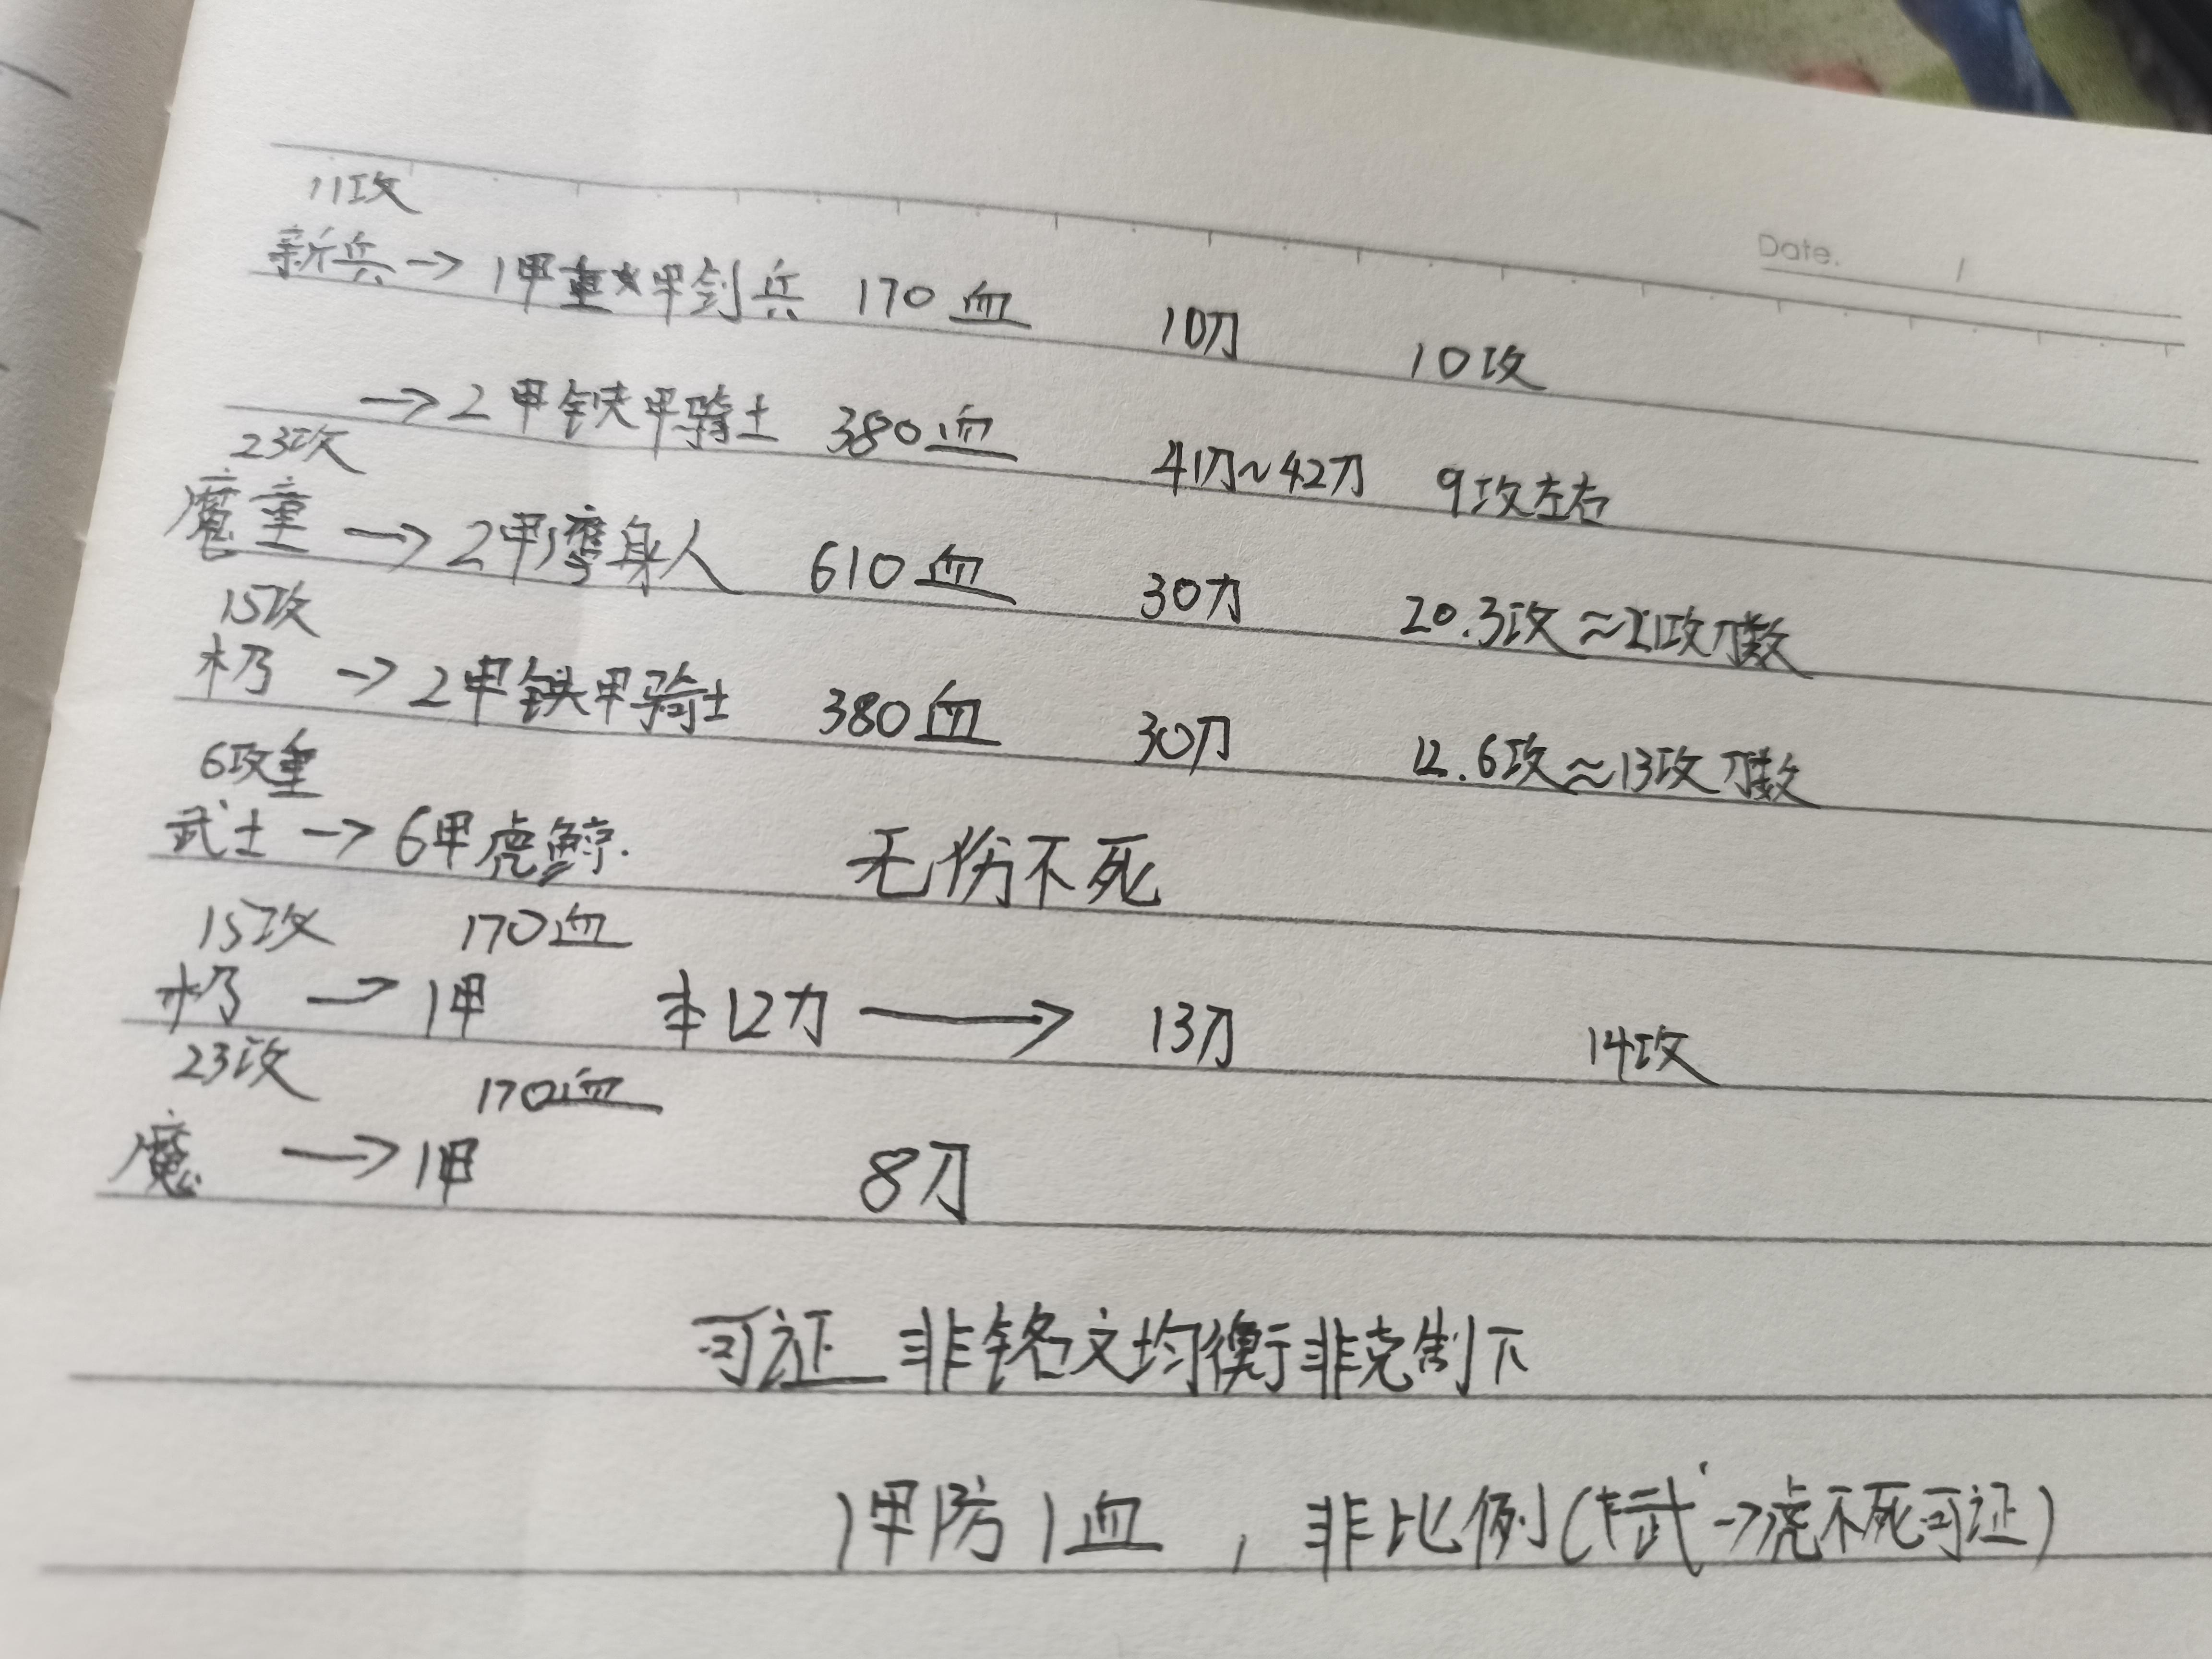 Date. /
11攻
新兵→1甲重甲剑兵 170血 10刀 10攻
→2甲铁甲骑士 380血 41刀~42刀 9攻左右
23攻
魔童→2甲鹰身人 610血 30刀 20.3攻≈21攻刀数
15攻
奶→2甲铁甲骑士 380血 30刀 12.6攻≈13攻刀数
6攻重
武士→6甲虎鲸. 无伤不死
15攻 170血
→1甲 12刀→13刀 14攻
23攻 170血
魔→1甲 8刀
可证 非铭文均衡非克制下
1甲防1血,非比例(武→虎不死可证)